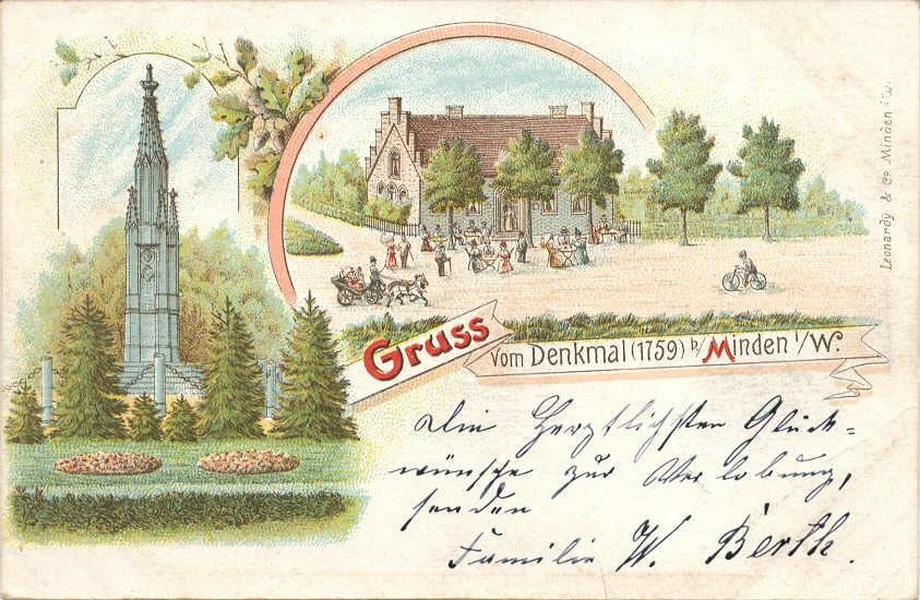 Gruss
vom Denkmal (1759) b/ Minden i/W.
Leonardy & Co Minden i/W.
Die Herzlichsten Glück=
wünsche zur Verlobung,
senden
Familie W. Berth.